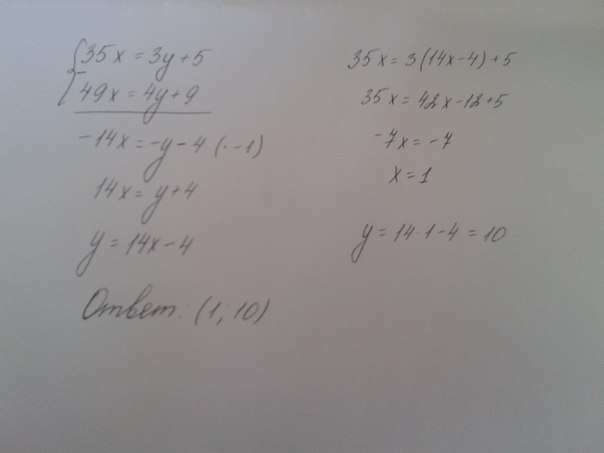 {35x = 3y + 5
49x = 4y + 9
-14x = -y - 4 (· -1)
14x = y + 4
y = 14x - 4
Ответ: (1; 10)
35x = 3(14x - 4) + 5
35x = 42x - 12 + 5
-7x = -7
x = 1
y = 14·1 - 4 = 10